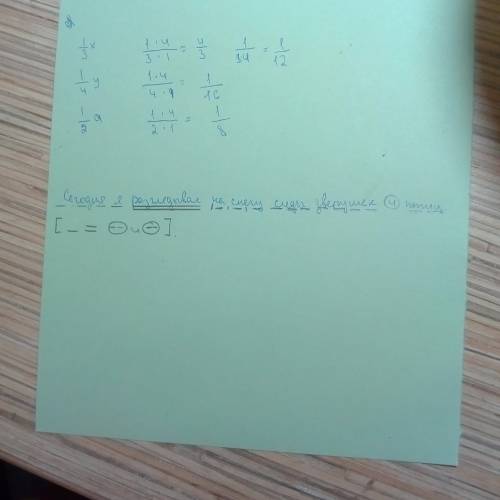 1/3 x 1·4/3·1 = 4/3 1/34 = 1/12
1/4 y 1·4/4·1 = 1/16
1/2 a 1·4/2·1 = 1/8
Сегодня я разглядывал на снегу следы зверушек и птиц
[ _ = и ].